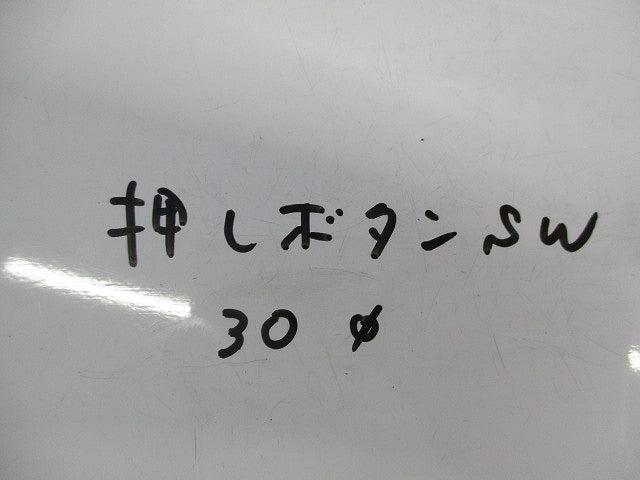 押しボタンSW
30φ